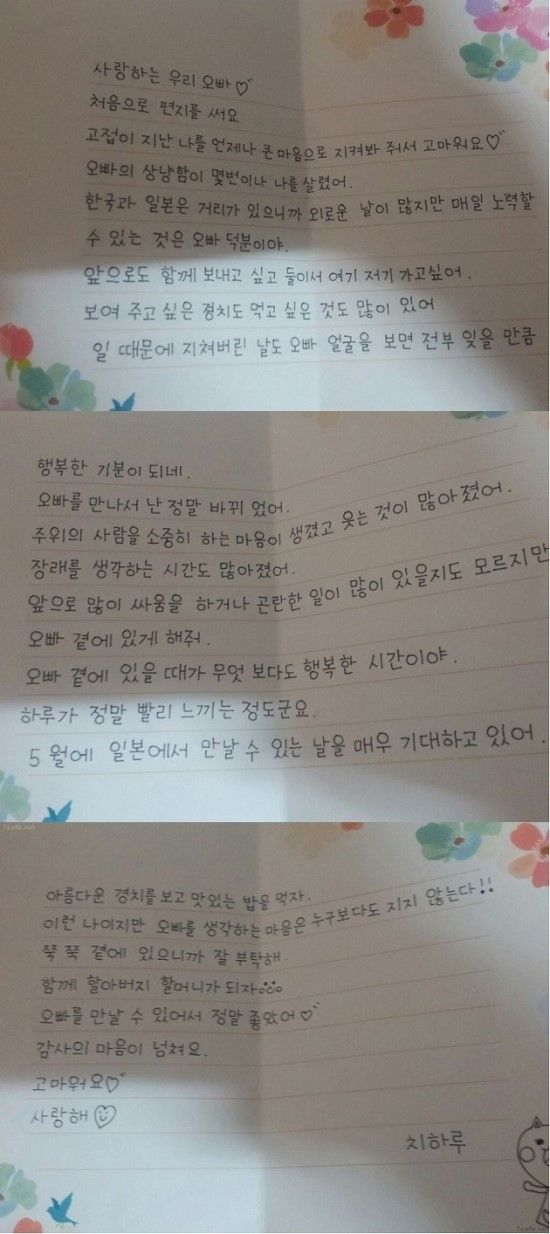 사랑하는 우리 오빠♡
처음으로 편지를 써요
고집이 지난 나를 언제나 큰마음으로 지켜봐 줘서 고마워요♡
오빠의 상냥함이 몇번이나 나를 살렸어.
한국과 일본은 거리가 있으니까 외로운 날이 많지만 매일 노력할
수 있는 것은 오빠 덕분이야.
앞으로도 함께 보내고 싶고 둘이서 여기 저기 가고싶어.
보여 주고 싶은 경치도 먹고 싶은 것도 많이 있어
일 때문에 지쳐버린 날도 오빠 얼굴을 보면 전부 잊을 만큼
행복한 기분이 되네.
오빠를 만나서 난 정말 바뀌 었어.
주위의 사람을 소중히 하는 마음이 생겼고 웃는 것이 많아졌어.
장래를 생각하는 시간도 많아졌어.
앞으로 많이 싸움을 하거나 곤란한 일이 많이 있을지도 모르지만
오빠 곁에 있게 해줘.
오빠 곁에 있을 때가 무엇 보다도 행복한 시간이야.
하루가 정말 빨리 느끼는 정도군요.
5월에 일본에서 만날 수 있는 날을 매우 기대하고 있어.
Tcafe.net
아름다운 경치를 보고 맛있는 밥을 먹자.
이런 나이지만 오빠를 생각하는 마음은 누구보다도 지지 않는다!!
쭉 쭉 곁에 있으니까 잘 부탁해.
함께 할아버지 할머니가 되자
오빠를 만날 수 있어서 정말 좋았어♡
감사의 마음이 넘쳐요.
고마워요♡
사랑해
치하루
Tcafe.net